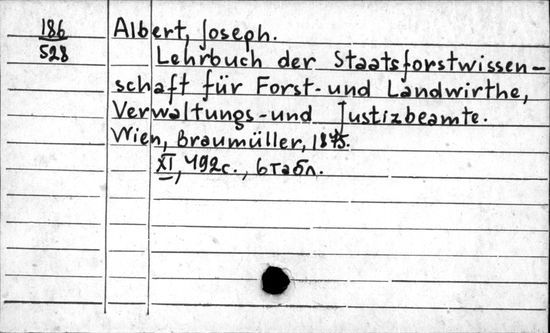 186
528
Albert, Joseph.
Lehrbuch der Staatsforstwissen-
schaft für Forst- und Landwirthe,
Verwaltungs- und Justizbeamte.
Wien, Braumüller, 1875.
XI, 492 с., 6 табл.